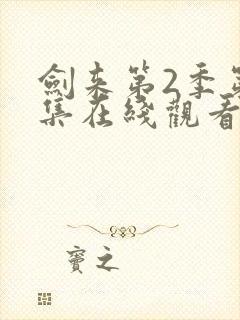 劍来第2季第
集在綫觀看
寶之